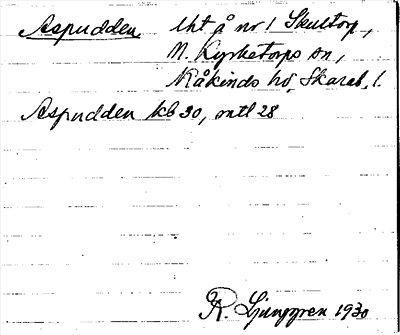 Aspudden lht å nr 1 Skultorp,
N. Kyrketorps sn,
Kåkinds hd, Skarab. l.
Aspudden kb 30, mtl 28
R. Ljunggren 1930